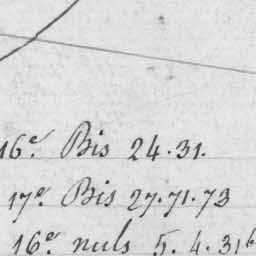 16e. Bis 24.31.
17e. Bis 27.71.73
16e. nuls 5.4.31b